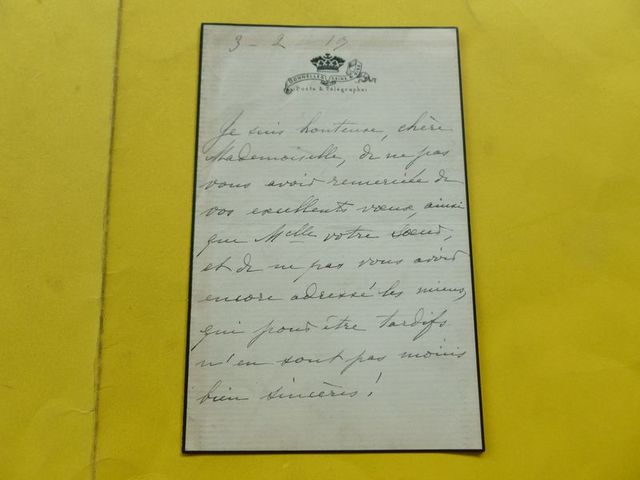 3 - 2 19
BONNELLES, SEINE & OISE
Poste & Télégraphe
Je suis honteuse, chère
Mademoiselle, de ne pas
vous avoir remerciée de
vos excellents vœux, ainsi
que Melle votre Sœur,
et de ne pas vous avoir
encore adressé les miens,
qui pour être tardifs
n'en sont pas moins
bien sincères !